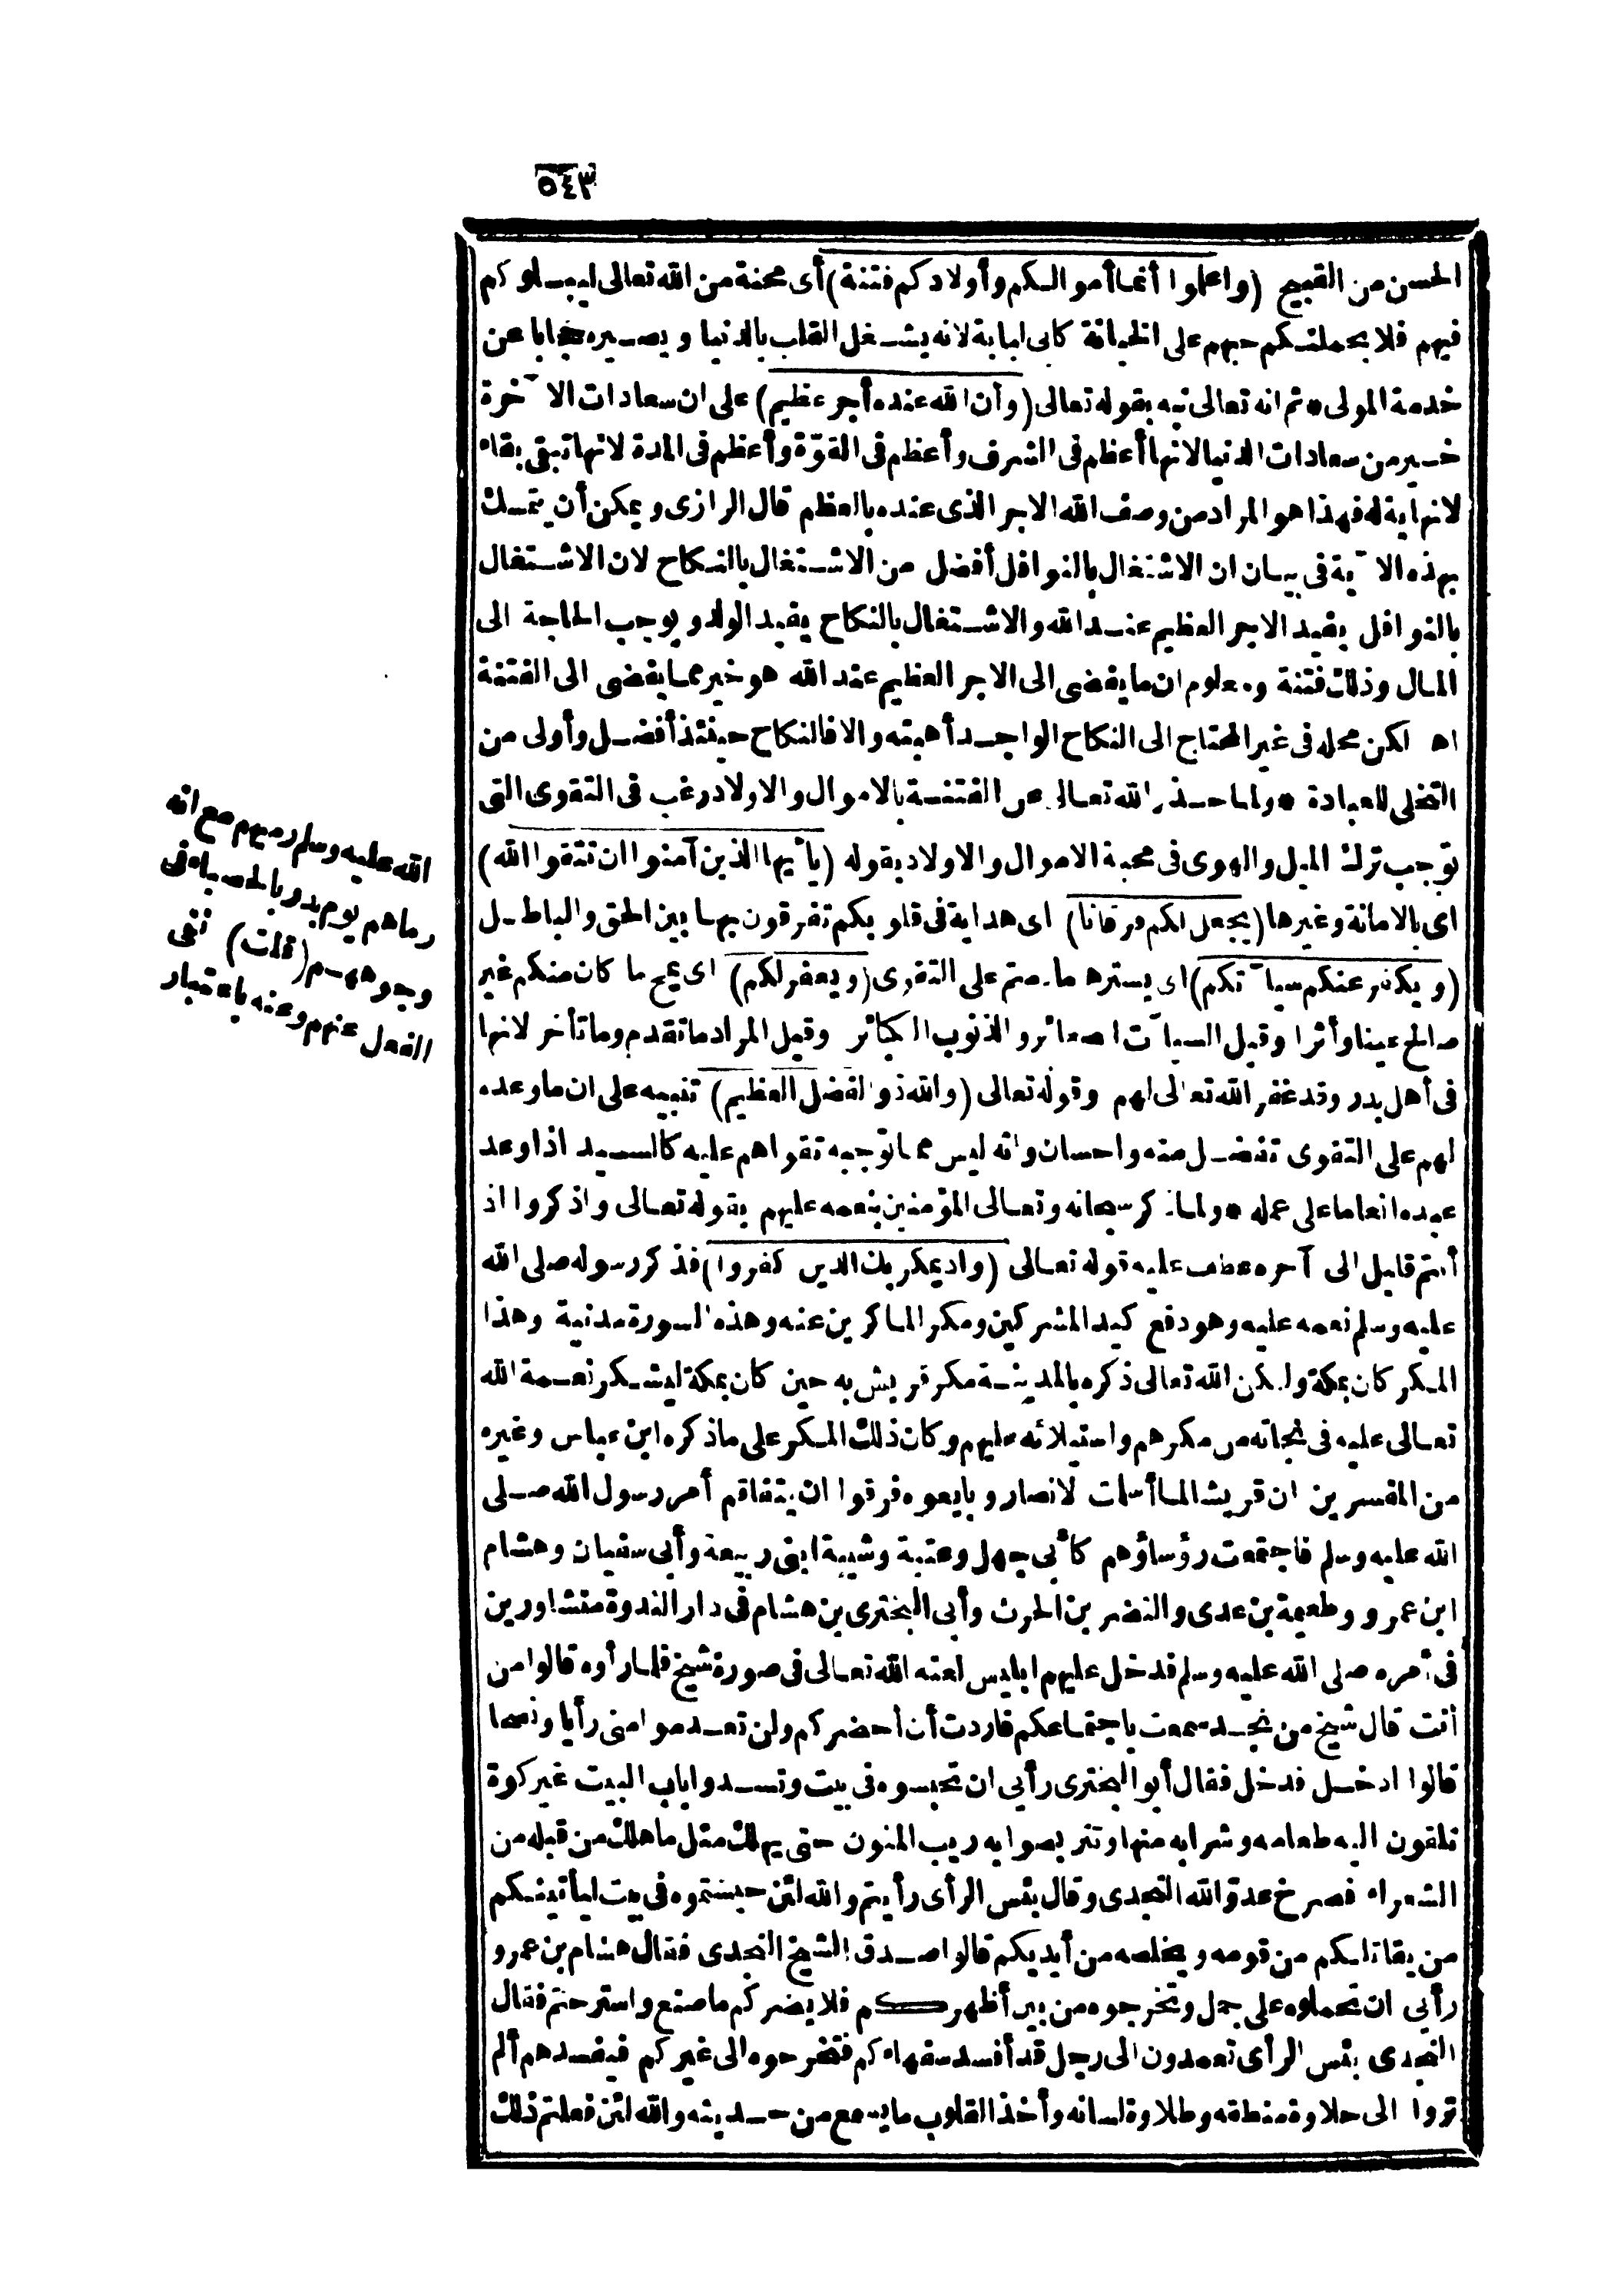 ٥٤٣
الحسن من القبيح (واعلموا أنما أموالكم وأولادكم فتنة) أى محنة من الله تعالى ليبلوكم
فيهم فلا يحملنكم حبهم على الخيانة كابى لبابة لانه يشغل القلب بالدنيا ويصيره حجابا عن
خدمة المولى * ثم انه تعالى نبه بقوله تعالى (وأن الله عنده أجر عظيم) على ان سعادات الآخرة
خير من سعادات الدنيا لانها أعظم فى الشرف وأعظم فى القوّة وأعظم فى المدة لانها تبقى بقاء
لانهاية له فهذا هو المراد من وصف الله الاجر الذى عنده بالعظم قال الرازى ويمكن أن يتمسك
بهذه الآية فى بيان ان الاشتغال بالنوافل أفضل من الاشتغال بالنكاح لان الاشتغال
بالنوافل يفيد الاجر العظيم عند الله والاشتغال بالنكاح يفيد الولد ويوجب الحاجة الى
المال وذلك فتنة ومعلوم ان ما يفضى الى الاجر العظيم عند الله هو خير مما يفضى الى الفتنة
اه لكن محله فى غير المحتاج الى النكاح الواجد أهبته والا فالنكاح حينئذ أفضل وأولى من
التخلى للعبادة * ولما حذر الله تعالى عن الفتنة بالاموال والاولاد رغب فى التقوى التى
توجب ترك الميل والهوى فى محبة الاموال والاولاد بقوله (يا أيها الذين آمنوا ان تتقوا الله)
اى بالامانة وغيرها (يجعل لكم فرقانا) اى هداية فى قلوبكم تفرقون بها بين الحق والباطل
(ويكفر عنكم سيآتكم) اى يسترها ما دمتم على التقوى (ويغفر لكم) اى يمح ما كان منكم غير
صالح عينا وأثرا وقيل السيآت الصغائر والذنوب الكبائر وقيل المراد ما تقدم وما تأخر لانها
فى أهل بدر وقد غفر الله تعالى لهم وقوله تعالى (والله ذو الفضل العظيم) تنبيه على ان ما وعده
لهم على التقوى تفضل منه واحسان وانه ليس مما توجبه تقواهم عليه كالسيد اذا وعد
عبده انعاما على عمله * ولما ذكر سبحانه وتعالى المؤمنين بنعمه عليهم بقوله تعالى واذكروا اذ
أنتم قليل الى آخره عطف عليه قوله تعالى (واذ يمكر بك الذين كفروا) فذكر رسوله صلى الله
عليه وسلم نعمه عليه وهو دفع كيد المشركين ومكر الماكرين عنه وهذه السورة مدنية وهذا
المكر كان بمكة ولكن الله تعالى ذكره بالمدينة مكر قريش به حين كان بمكة ليشكر نعمة الله
تعالى عليه فى نجاته من مكرهم واستيلائه عليهم وكان ذلك المكر على ما ذكره ابن عباس وغيره
من المفسرين ان قريشا لما أسلمت الانصار وبايعوه فرقوا ان يتفاقم أمر رسول الله صلى
الله عليه وسلم فاجتمعت رؤساؤهم كأبى جهل وعتبة وشيبة ابنى ربيعة وأبى سفيان وهشام
ابن عمرو وطعيمة بن عدى والنضر بن الحرث وأبى البخترى بن هشام فى دار الندوة متشاورين
فى أمره صلى الله عليه وسلم فدخل عليهم ابليس لعنه الله تعالى فى صورة شيخ فلما رأوه قالوا من
أنت قال شيخ من نجد سمعت باجتماعكم فاردت أن أحضركم ولن تعدموا منى رأيا ونصحا
قالوا ادخل فدخل فقال أبو البخترى رأيى ان تحبسوه فى بيت وتسدوا باب البيت غير كوة
تلقون اليه طعامه وشرابه منها وتتربصوا به ريب المنون حتى يهلك مثل ما هلك من قبله من
الشعراء فصرخ عدوّ الله النجدى وقال بئس الرأى رأيتم والله لئن حبستموه فى بيت ليأتينكم
من يقاتلكم من قومه ويخلصه من أيديكم قالوا صدق الشيخ النجدى فقال هشام بن عمرو
رأيى ان تحملوه على جمل وتخرجوه من بين أظهركم فلا يضركم ما صنع واسترحتم فقال
النجدى بئس الرأى تعمدون الى رجل قد أفسد سفهاءكم فتخرجوه الى غيركم فيفسدهم ألم
تروا الى حلاوة منطقه وطلاوة لسانه وأخذ القلوب ما يسمع من حديثه والله لئن فعلتم ذلك
الله عليه وسلم رميهم مع انه
رماهم يوم بدر بالحصباء فى
وجوههم (قلت) نفى
الفعل عنهم وعنه باعتبار